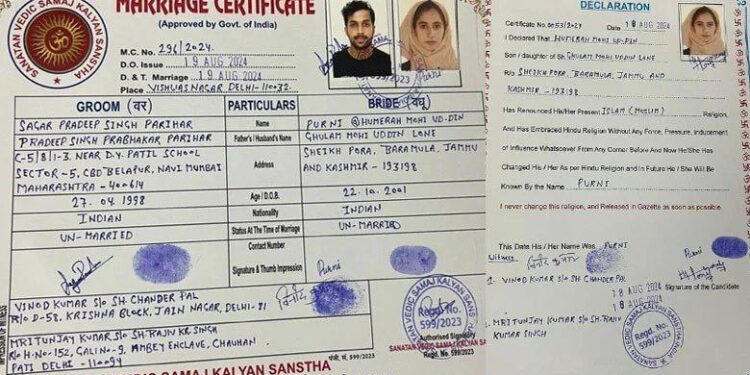 MARRIAGE CERTIFICATE
(Approved by Govt. of India)
SANATAN VEDIC SAMAJ KALYAN SANSTHA
M.C. No. 296/2024.
D.O. Issue 19 AUG 2024
D. & T. Marriage 19 AUG 2024
Place VISHWAS NAGAR, DELHI-110032.
599/2023
Purni
GROOM (वर) PARTICULARS BRIDE (वधू)
SAGAR PRADEEP SINGH PARIHAR Name PURNI @HUMERAH MOHI UD-DIN
PRADEEP SINGH PRABHAKAR PARIHAR Father's / Husband's Name GHULAM MOHI UDDIN LONE
C-5/8/1-3. NEAR D.Y. PATIL SCHOOL
SECTOR-5, CBD BELAPUR, NAVI MUMBAI
MAHARASHTRA - 400614
Address
SHEIKH PORA, BARAMULA, JAMMU
AND KASHMIR - 193198
27. 04. 1998 Age / D.O.B. 22. 10. 2001
INDIAN Nationality INDIAN
UN-MARRIED Status At The Time of Marriage UN-MARRIED
Contact Number
Signature & Thumb Impression Purni
VINOD KUMAR S/O SH. CHANDER PAL
R/O D-58, KRISHNA BLOCK, JAIN NAGAR, DELHI-
MRITUNJAY KUMAR S/O SH. RAJIV KR. SINGH
R/O H.NO-152, GALI NO-9, AMBEY ENCLAVE, CHAUHAN
PATI DELHI - 110094
Regd. No.
599/2023
Authorised Signatory
SANATAN VEDIC SAMAJ KALYAN SANSTHA
Regd. No. 599/2023
VEDIC SAMAJ KALYAN SANSTHA
DECLARATION
Certificate No. 0053/2024 18 AUG 2024
I Declared That HUMERAH MOHI UD-DIN
Son / daughter of Sh. GHULAM MOHI UDDIN LONE
R/o SHEIKH PORA, BARAMULA, JAMMU AND
KASHMIR - 193198
Has Renounced His/Her Present ISLAM (MUSLIM) Religion,
And Has Embraced Hindu Religion Without Any Force, Pressure, Inducement
of Influence Whatsoever From Any Corner Before And Now He/She Has
Changed His / Her As per Hindu Religion and in Future He / She Will Be
Known By the Name PURNI
I never change this religion, and Released in Gazette as soon as possible.
This Date His / Her Name Was PURNI
Witness
VINOD KUMAR S/O SH. CHANDER PAL
18 AUG 2024
Signature of the Candidate
18 AUG 2024
MRITUNJAY KUMAR S/O SH. RAJIV
KUMAR SINGH
Regd. No.
599/2023